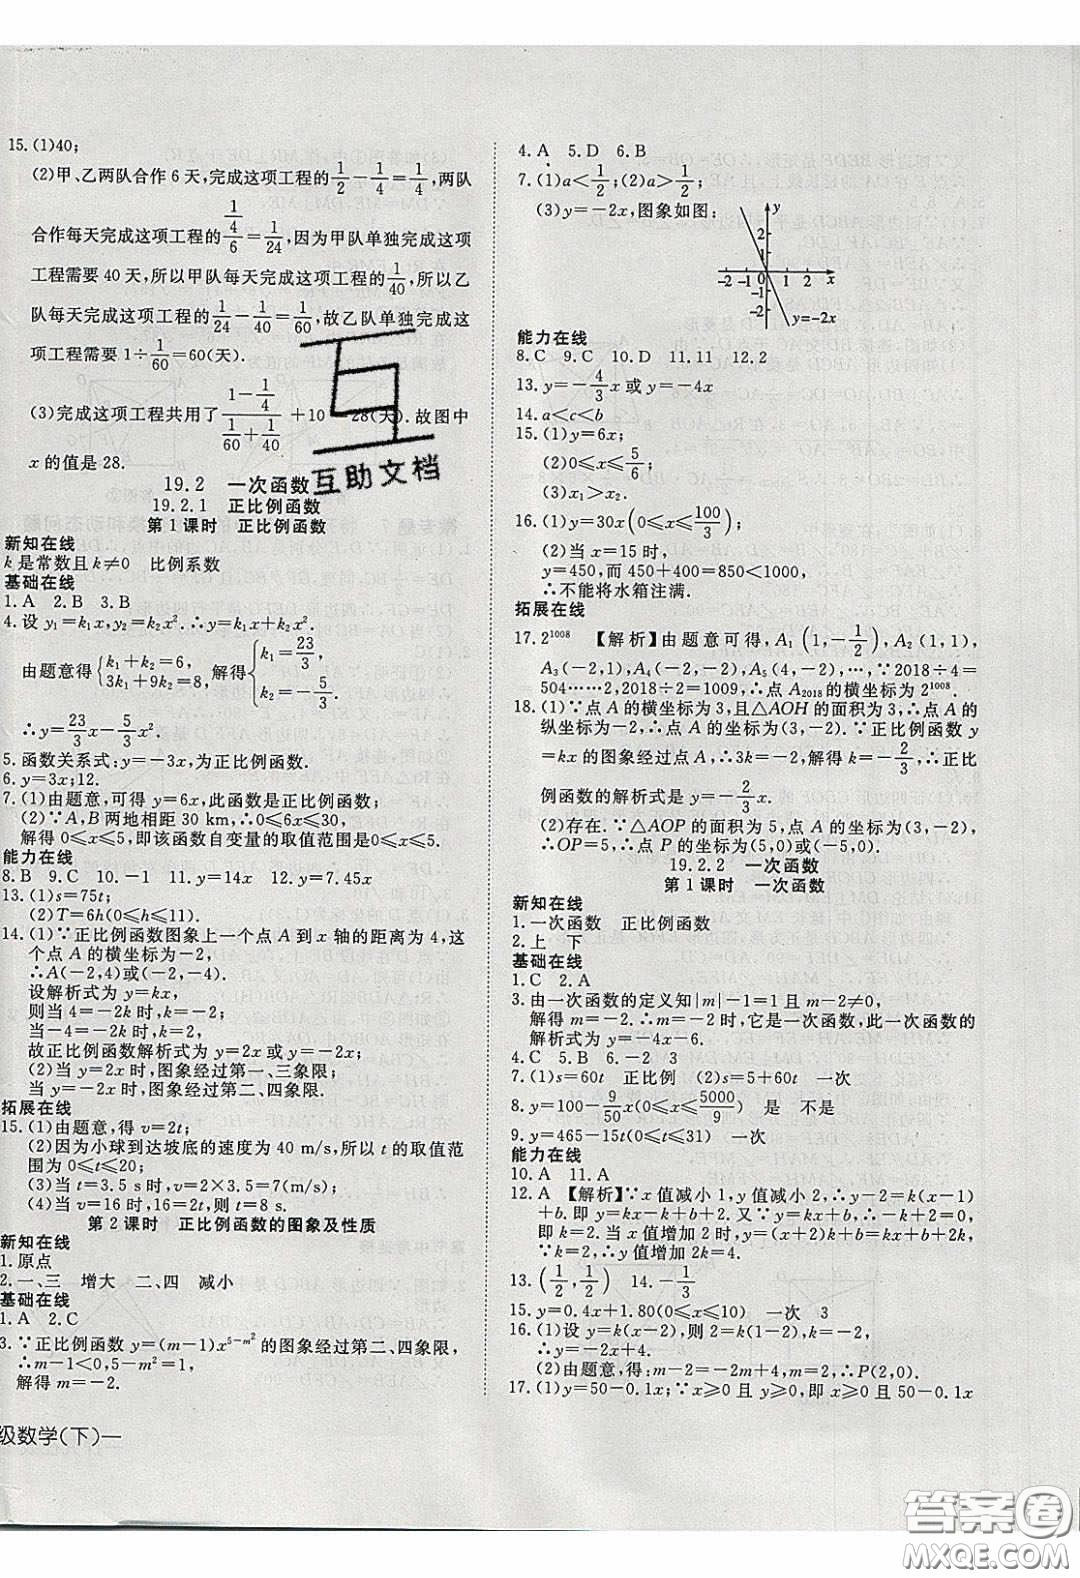 15.(1)40;
(2)甲、乙两队合作 6 天,完成这项工程的 1/2 - 1/4 = 1/4,两队
合作每天完成这项工程的 (1/4)/6 = 1/24,因为甲队单独完成这项
工程需要 40 天,所以甲队每天完成这项工程的 1/40,所以乙
队每天完成这项工程的 1/24 - 1/40 = 1/60,故乙队单独完成这
项工程需要 1÷1/60=60(天).
(3)完成这项工程共用了 (1-1/4)/(1/60+1/40)+10=28(天).故图中
x 的值是 28.
19.2 一次函数
19.2.1 正比例函数
第 1 课时 正比例函数
新知在线
k 是常数且 k≠0 比例系数
基础在线
1.A 2.B 3.B
4.设 y₁=k₁x,y₂=k₂x².∴y=k₁x+k₂x².
由题意得{k₁+k₂=6, 3k₁+9k₂=8, 解得{k₁=23/3, k₂=-5/3.
∴y=23/3x-5/3x².
5.函数关系式:y=-3x,为正比例函数.
6.y=3x;12.
7.(1)由题意,可得 y=6x,此函数是正比例函数;
(2)∵A,B 两地相距 30 km,∴0≤6x≤30,
解得 0≤x≤5,即该函数自变量的取值范围是0≤x≤5.
能力在线
8.B 9.C 10.-1 11.y=14x 12.y=7.45x
13.(1)s=75t;
(2)T=6h(0<h<12).
14.(1)∵正比例函数图象上一个点 A 到 x 轴的距离为 4,这
个点 A 的横坐标为-2,
∴A(-2,4)或(-2,-4).
设解析式为 y=kx,
则当 4=-2k 时,k=-2;
当-4=-2k 时,k=2,
故正比例函数解析式为 y=2x 或 y=-2x;
(2)当 y=2x 时,图象经过第一、三象限;
当 y=-2x 时,图象经过第二、四象限.
拓展在线
15.(1)由题意,得 v=2t;
(2)因为小球到达坡底的速度为 40 m/s,所以 t 的取值范
围为 0≤t≤20;
(3)当 t=3.5 s 时,v=2×3.5=7(m/s);
(4)当 v=16 时,16=2t,则 t=8(s).
第 2 课时 正比例函数的图象及性质
新知在线
1.原点
2.一、三 增大 二、四 减小
基础在线
1.A 2.C
3.∵正比例函数 y=(m-1)x^(5-m²) 的图象经过第二、四象限,
∴m-1<0,5-m²=1,
解得 m=-2.
级数学(下)—
4.A 5.D 6.B
7.(1)a<1/2;(2)a>1/2;
(3)y=-2x,图象如图:
y
2
1
-2 -1 0 1 2 x
-1
-2
y=-2x
能力在线
8.C 9.C 10.D 11.11 12.2
13.y=-4/3x 或 y=-4x
14.a<c<b
15.(1)y=6x;
(2)0≤x≤5/6;
(3)x₁>x₂.
16.(1)y=30x(0≤x≤100/3);
(2)当 x=15 时,
y=450,而 450+400=850<1000,
∴不能将水箱注满.
拓展在线
17.2¹⁰⁰⁸ 【解析】由题意可得,A₁(1,-1/2),A₂(1,1),
A₃(-2,1),A₄(-2,-2),A₅(4,-2),…,∵2018÷4=
504……2,2018÷2=1009,∴点 A₂₀₁₈的横坐标为 2¹⁰⁰⁸.
18.(1)∵点 A 的横坐标为 3,且△AOH 的面积为 3,∴点 A 的
纵坐标为-2,∴点 A 的坐标为(3,-2).∵正比例函数 y
=kx 的图象经过点 A,∴3k=-2,解得 k=-2/3,∴正比
例函数的解析式是 y=-2/3x.
(2)存在.∵△AOP 的面积为 5,点 A 的坐标为(3,-2),
∴OP=5,∴点 P 的坐标为(5,0)或(-5,0).
19.2.2 一次函数
第 1 课时 一次函数
新知在线
1.一次函数 正比例函数
2.上 下
基础在线
1.C 2.A
3.由一次函数的定义知|m|-1=1 且 m-2≠0,
解得 m=-2.∴m=-2时,它是一次函数,此一次函数的
解析式为 y=-4x-6.
4.C 5.B 6.-2 3
7.(1)s=60t 正比例 (2)s=5+60t 一次
8.y=100-9/50x(0≤x≤5000/9) 是 不是
9.y=465-15t(0≤t≤31) 一次
能力在线
10.A 11.A
12.A 【解析】∵x 值减小 1,y 值减小 2,∴y-2=k(x-1)
+b.即 y=kx-k+b+2.又∵y=kx+b,∴-k+b+2=b.
即-k+2=0.∴k=2.当 x 值增加 2 时,y=k(x+2)+b=kx+b+2k,
∴y 值增加 2k=4.
13.(1/2,1/2) 14.-1/3
15.y=0.4x+1.80(0≤x≤10) 一次 3
16.(1)设 y=k(x-2),则 2=k(1-2),∴k=-2.
∴y=-2x+4.
(2)由题意,得:m-2=-2m+4,∴m=2,∴P(2,0).
17.(1)y=50-0.1x;∵x≥0 且 y≥0,即 x≥0 且 50-0.1x
互助文档
答案圈
MXQE.COM